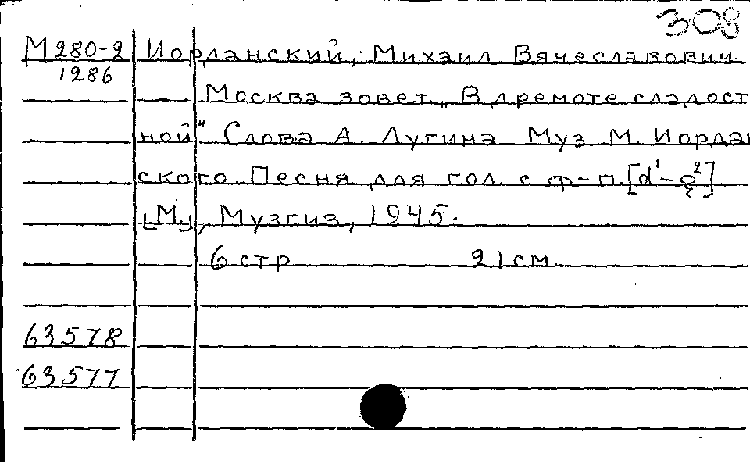 308
М 280-2 Иорданский, Михаил Вячеславович
1286
Москва зовет „В дремоте сладост
ной" Слова А. Лугина Муз М. Иордан
ского Песня для гол с ф-п. [d¹-e²]
[М], Музгиз, 1945.
6 стр 21 см
63578
63577